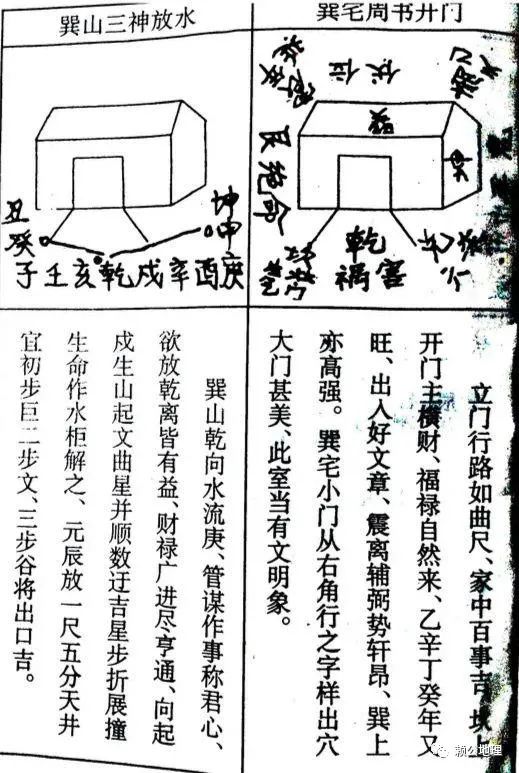 巽宅周书开门
伏位
艮绝命
乾
祸害
立门行路如曲尺、家中百事吉、坎上
开门主横财、福禄自然来、乙辛丁癸年又
旺、出人好文章、震离辅弼势轩昂、巽上
亦高强。巽宅小门从右角行之字样出穴
大门甚美、此室当有文明象。
巽山三神放水
坤
申
丑
癸
子壬亥乾戍辛酉庚
巽山乾向水流庚、管谋作事称君心、
欲放乾离皆有益、财禄广进尽亨通、向起
戍生山起文曲星并顺数迂吉星步折展撞
生命作水柜解之、元辰放一尺五分天井
宜初步巨二步文、三步谷将出口吉。
赖公地理